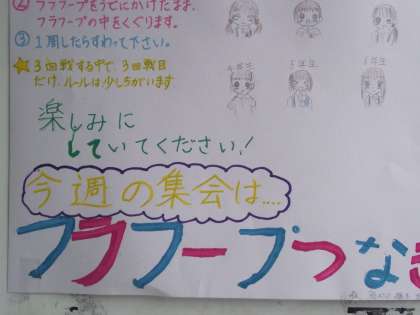 ②フラフープをうでにかけたまま、
フラフープの中をくぐります。
③1周したらすわって下さい。
★3回戦する中で、3回戦目
だけ、ルールは少しちがいます
4年生
5年生
6年生
楽しみに
していてください!
今週の集会は....
フラフープつなき